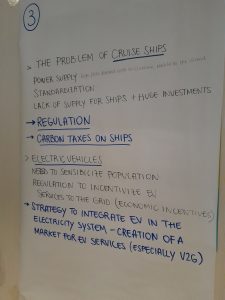 3
> THE PROBLEM OF CRUISE SHIPS
POWER SUPPLY
STANDARDISATION
LACK OF SUPPLY FOR SHIPS + HUGE INVESTMENTS
→ REGULATION
→ CARBON TAXES ON SHIPS
> ELECTRIC VEHICLES
NEED TO SENSIBILIZE POPULATION
REGULATION TO INCENTIVIZE EV
SERVICES TO THE GRID (ECONOMIC INCENTIVES)
→ STRATEGY TO INTEGRATE EV IN THE
ELECTRICITY SYSTEM - CREATION OF A
MARKET FOR EV SERVICES (ESPECIALLY V2G)